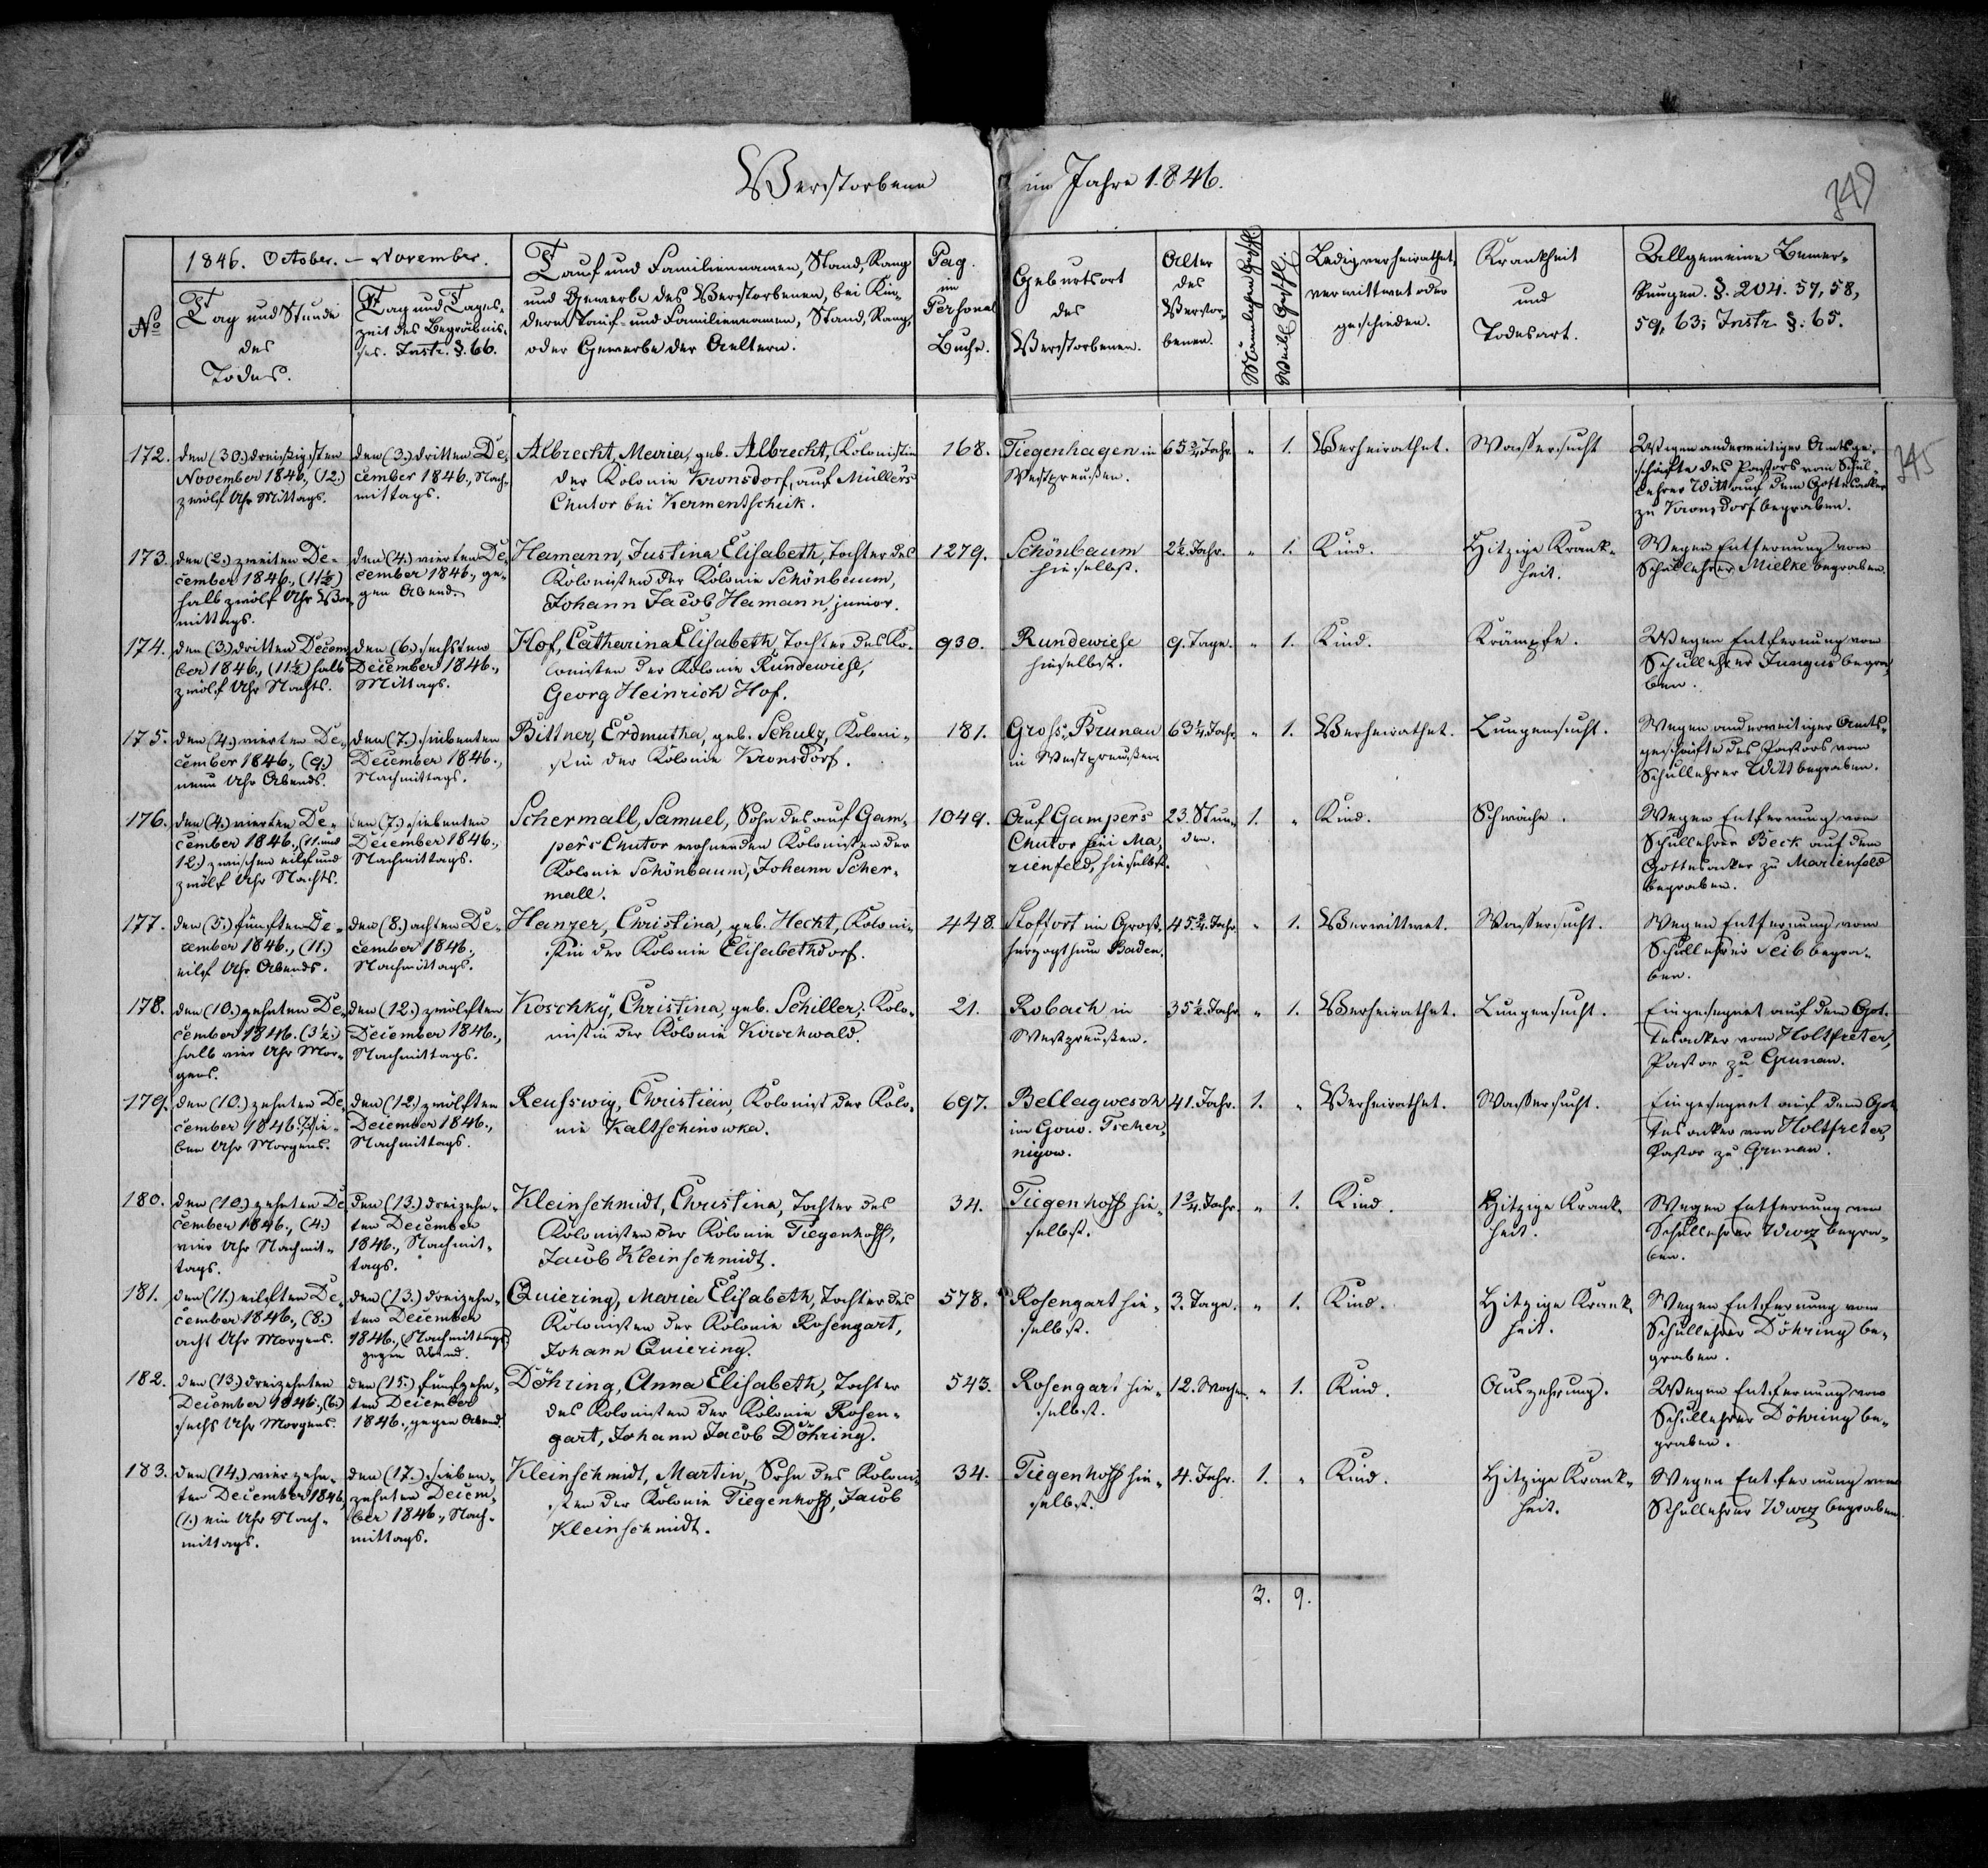 Verstorbene im Jahre 1846.
349
345
1846. October. – November.
No
Tag und Stunde
des
Todes.
Tag und Tages-
zeit des Begräbnis-
ses. Instr. §. 66.
Tauf und Familiennamen, Stand, Rang
und Gewerbe des Verstorbenen, bei Kin-
dern Tauf- und Familiennamen, Stand, Rang,
oder Gewerbe der Aeltern.
Pag.
im
Personal
Buche.
Geburtsort
des
Verstorbenen.
Alter
des
Verstor-
benen.
Männlichen Geschl.
Weibl. Geschl.
Ledig, verheirathet,
verwittwet oder
geschieden.
Krankheit
und
Todesart.
Allgemeine Bemer-
kungen. §. 204. 57, 58,
59, 63; Instr. §. 65.
172.
den (30.) dreißigsten
November 1846., (12.)
zwölf Uhr Mittags.
den (3.) dritten De-
cember 1846., Nach-
mittags.
Albrecht, Maria, geb. Albrecht, Kolonistin
der Kolonie Kronsdorf, auf Müllers
Chutor bei Kermentschik.
168.
Tiegenhagen in
Westpreußen.
65 3/4 Jahr.
"
1.
Verheirathet.
Wassersucht
Wegen anderweitiger Amtsge-
schäfte des Pastors vom Schul-
lehrer Witt auf dem Gottesacker
zu Kronsdorf begraben.
173.
den (2.) zweiten De-
cember 1846., (11 1/2)
halb zwölf Uhr Vor-
mittags.
den (4.) vierten De-
cember 1846., ge-
gen Abend.
Hamann, Justina Elisabeth, Tochter des
Kolonisten der Kolonie Schönbaum,
Johann Jacob Hamann, junior.
1279.
Schönbaum
hieselbst.
2 1/2 Jahr.
"
1.
Kind.
Hitzige Krank-
heit.
Wegen Entfernung vom
Schullehrer Mielke begraben.
174.
den (3.) dritten Decem-
ber 1846., (11 1/2) halb
zwölf Uhr Nachts.
den (6.) sechsten
December 1846.,
Mittags.
Hof, Catharina Elisabeth, Tochter des Ko-
lonisten der Kolonie Rundewiese,
Georg Heinrich Hof.
930.
Rundewiese
hieselbst.
9. Tage.
"
1.
Kind.
Krämpfe.
Wegen Entfernung vom
Schullehrer Jungus begra-
ben.
175.
den (4.) vierten De-
cember 1846., (9.)
neun Uhr Abends.
den (7.) siebenten
December 1846.,
Nachmittags.
Bittner, Erdmutha, geb. Schulz, Koloni-
stin der Kolonie Kronsdorf.
181.
Gross-Brunau
in Westpreußen
63 1/4 Jahr.
"
1.
Verheirathet.
Lungensucht.
Wegen anderweitiger Amts-
geschäfte des Pastors vom
Schullehrer Witt begraben.
176.
den (4.) vierten De-
cember 1846., (11. und
12.) zwischen eilf und
zwölf Uhr Nachts.
den (7.) siebenten
December 1846.,
Nachmittags.
Schermall, Samuel, Sohn des auf Gam-
pers Chutor wohnenden Kolonisten der
Kolonie Schönbaum, Johann Scher-
mall.
1049.
Auf Gampers
Chutor bei Ma-
rienfeld, hieselbst.
23. Stun-
den.
1.
"
Kind.
Schwäche.
Wegen Entfernung vom
Schullehrer Beck auf dem
Gottesacker zu Marienfeld
begraben.
177.
den (5.) fünften De-
cember 1846., (11.)
eilf Uhr Abends.
den (8.) achten De-
cember 1846.,
Nachmittags.
Hanzer, Christina, geb. Hecht, Koloni-
stin der Kolonie Elisabethdorf.
448.
im Groß-
herzogthum Baden.
45 3/4 Jahr.
"
1.
Verwittwet.
Wassersucht.
Wegen Entfernung vom
Schullehrer Seib begra-
ben.
178.
den (10.) zehnten De-
cember 1846. (3 1/2.)
halb vier Uhr Mor-
gens.
den (12.) zwölften
December 1846.,
Nachmittags.
Koschky, Christina, geb. Schiller, Kolo-
nistin der Kolonie Kirschwald.
21.
Robach in
Westpreußen.
35 1/2 Jahr.
"
1.
Verheirathet.
Lungensucht.
Eingesegnet auf dem Got-
tesacker vom Holtfreter,
Pastor zu Grunau.
179.
den (10.) zehnten De-
cember 1846. (7.) sie-
ben Uhr Morgens.
den (12.) zwölften
December 1846.,
Nachmittags.
Reusswig, Christian, Kolonist der Kolo-
nie Kaltschinowka.
697.
Bellagwesch
im Gouv. Tscher-
nigow.
41. Jahr.
1.
"
Verheirathet.
Wassersucht.
Eingesegnet auf dem Got-
tesacker von Holtfreter,
Pastor zu Grunau.
180.
den (10.) zehnten De-
cember 1846., (4.)
vier Uhr Nachmit-
tags.
den (13.) dreizehn-
ten December
1846., Nachmit-
tags.
Kleinschmidt, Christina, Tochter des
Kolonisten der Kolonie Tiegenhoff,
Jacob Kleinschmidt.
34.
Tiegenhoff hie-
selbst.
1 3/4 Jahr.
"
1.
Kind.
Hitzige Krank-
heit.
Wegen Entfernung vom
Schullehrer begra-
ben.
181.
den (11.) eilften De-
cember 1846., (8.)
acht Uhr Morgens.
den (13.) dreizehn-
ten December
1846., (Nachmittags)
gegen Abend.
Quiering, Maria Elisabeth, Tochter des
Kolonisten der Kolonie Rosengart,
Johann Quiering.
578.
Rosengart hie-
selbst.
3. Tage.
"
1.
Kind.
Hitzige Krank-
heit.
Wegen Entfernung vom
Schullehrer Döhring be-
graben.
182.
den (13.) dreizehnten
December 1846., (6.)
sechs Uhr Morgens.
den (15.) fünfzehn-
ten December
1846., gegen Abend.
Döhring, Anna Elisabeth, Tochter
des Kolonisten der Kolonie Rosen-
gart, Johann Jacob Döhring.
543.
Rosengart hie-
selbst.
12. Wochen.
"
1.
Kind.
Auszehrung.
Wegen Entfernung vom
Schullehrer Döhring be-
graben.
183.
den (14.) vierzehn-
ten December 1846.,
(1.) ein Uhr Nach-
mittags.
den (17.) sieben-
zehnten Decem-
ber 1846., Nach-
mittags.
Kleinschmidt, Martin, Sohn des Koloni-
sten der Kolonie Tiegenhoff, Jacob
Kleinschmidt.
34.
Tiegenhoff hie-
selbst.
4. Jahr.
1.
"
Kind.
Hitzige Krank-
heit.
Wegen Entfernung vom
Schullehrer begraben.
3. 9.